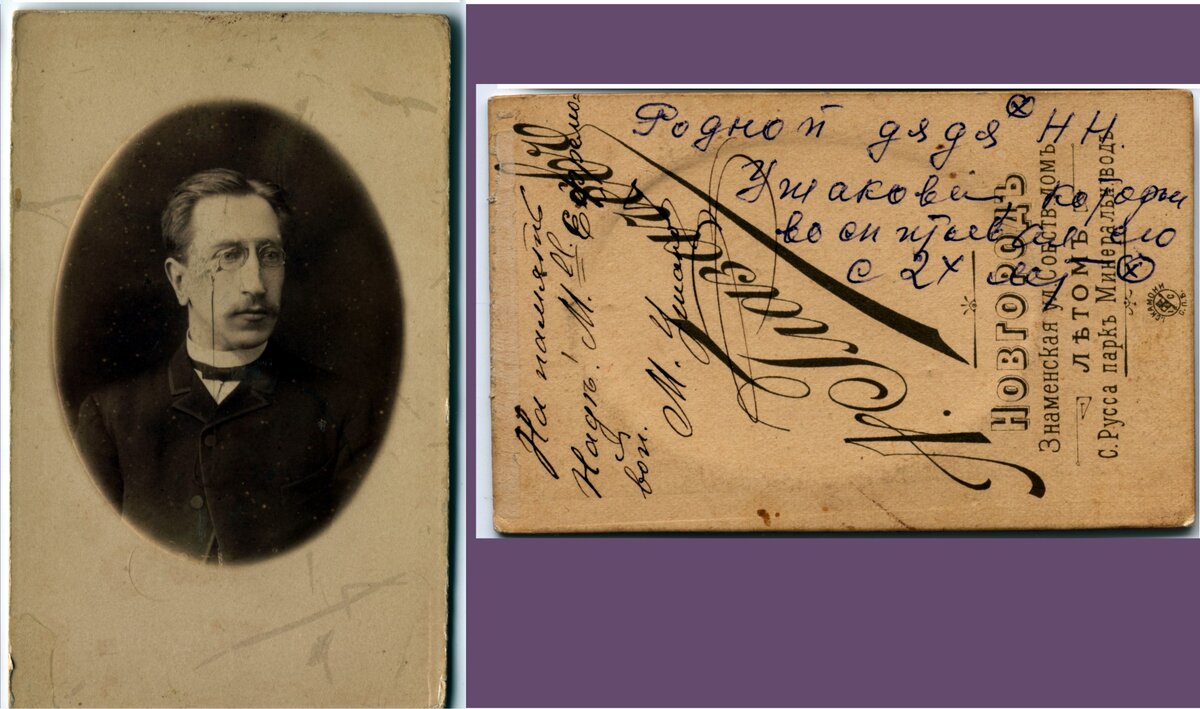 Родной дядя ⊗ НН
Ушакова который
воспитывал его
с 2х лет ⊗
На память
Надѣ. М. Е
вой.
М. Ушаковъ
Н.
НОВГОРОДЪ
Знаменская ул. Собств. домъ.
ЛѢТОМЪ
С. Русса паркъ Минеральн. водъ